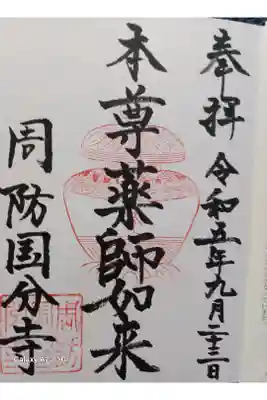 奉拝 令和五年九月二十三日
本尊薬師如来
周防国分寺